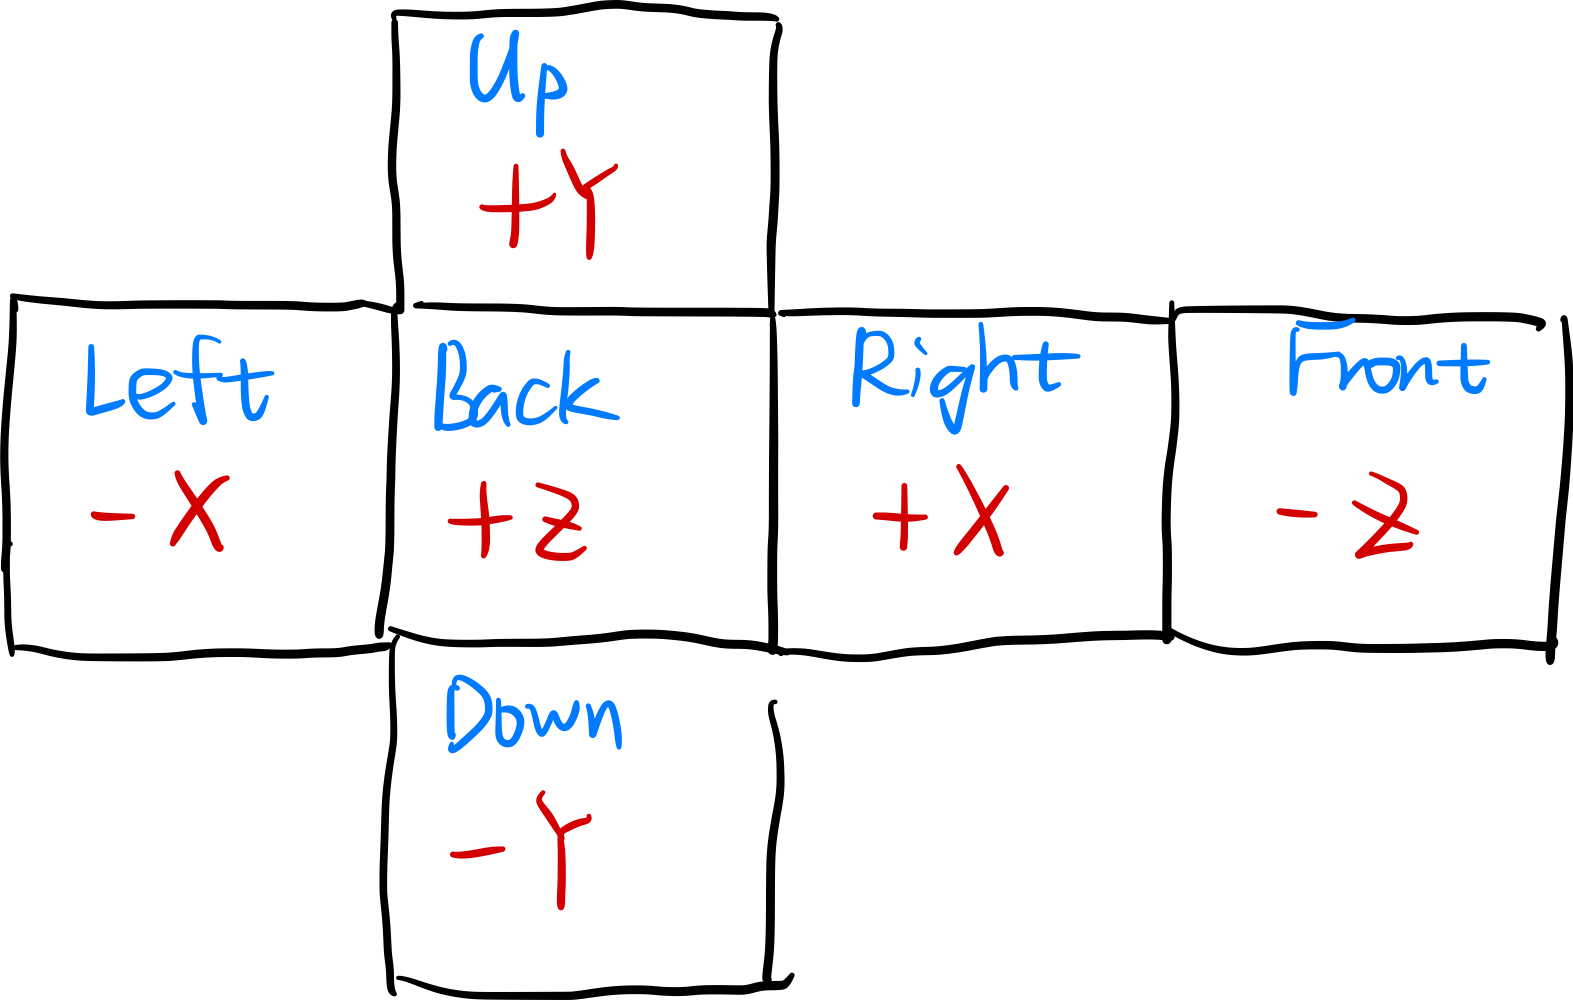 Up
+Y
Left
-X
Back
+Z
Right
+X
Front
-Z
Down
-Y